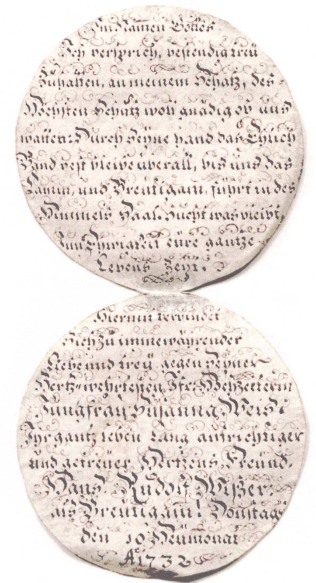 Im Namen Gottes
Ich versprich, bestendig treü
Zuhaben, an meinem Schatz, des
Höchsten Schutz woll gnädig ob uns
walten: Durch seÿne hand das Ehlich
Band vest bleibe überall, bis uns das
Lamm, und Breutigam, führt in des
Himmels Saal. Sucht was bleibt,
Zum Ewigkeit eüre gantze
Lebens Zeit.
Hiermit verbindet
Sich zu immerwährender
Liebe und treü gegen seÿner
Hertz-wehrtesten Hochzeiterin
Jungfrau Susanna Weiß:
Ihr gantz leben Lang aufrichtiger
und getreüer Hertzens freünd.
Hans Rudolf Wißer
als Breutigam! Donstag
den 10 Heümonat
A° 1732